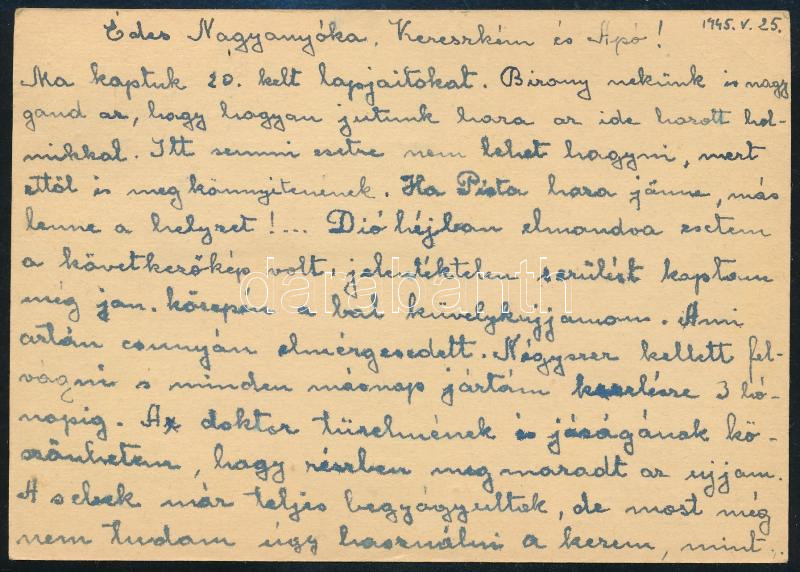 1945. V. 25.
Édes Nagyanyóka, Kereszkém és Apó!
Ma kaptuk 20. kelt lapjaitokat. Bizony nekünk is nagy
gond az, hogy hogyan jutunk haza az ide hozott hol-
mikkal. Itt semmi esetre nem lehet hagyni, mert
ettől is megkönnyítenének. Ha Pista haza jönne, más
lenne a helyzet!... Dióhéjban elmondva esetem
a következőkép volt, jelentéktelen sérülést kaptam
még jan. közepén a bal küvelykujjamom. Ami
aztán csunyán elmérgesedett. Négyszer kellett fel-
vágni s minden másnap jártam kezelésre 3 hó-
napig. Az doktor türelmének és jóságának kö-
szönhetem, hogy részben megmaradt az ujjam.
A sebek már teljes begyógyultok, de most még
nem tudom úgy használni a kezem, mint..
darabanth